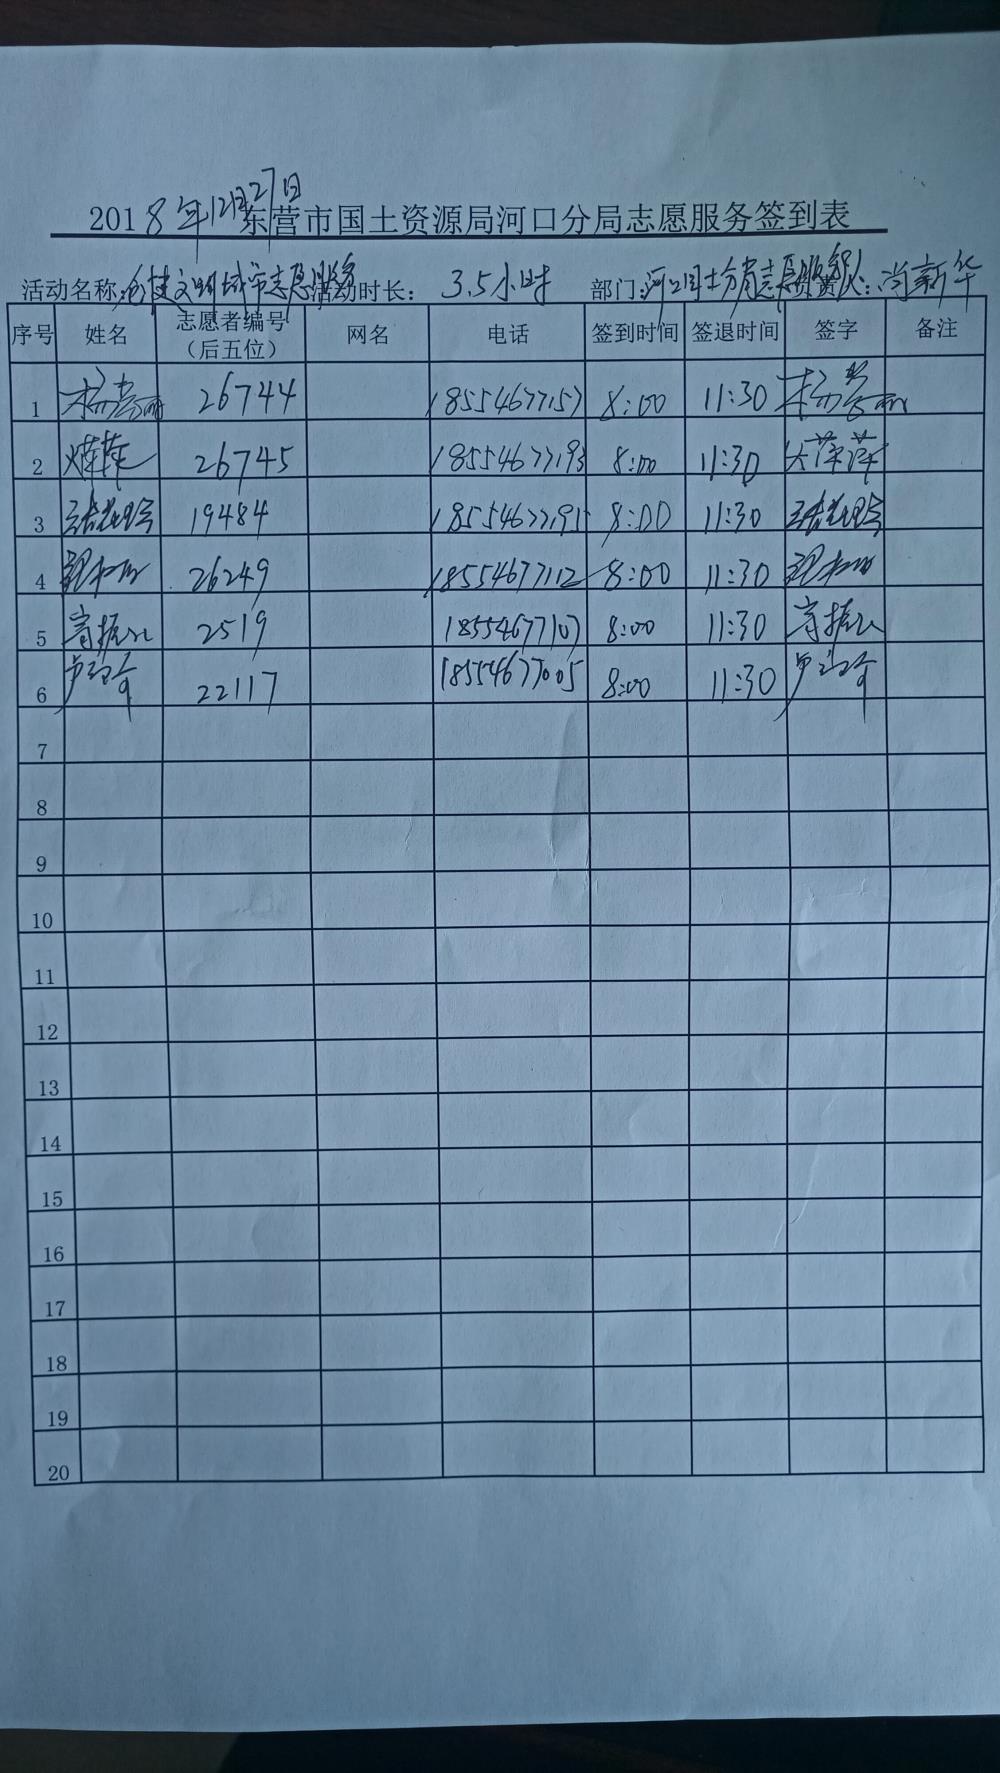 2018年12月27日
东营市国土资源局河口分局志愿服务签到表
活动名称:创建文明城市志愿服务 活动时长: 3.5小时 部门:河口国土分局志愿服务队 负责人:尚新华
序号 姓名 志愿者编号（后五位） 网名 电话 签到时间 签退时间 签字 备注
1 26744 18554677157 8:00 11:30
2 26745 18554677193 8:00 11:30
3 19484 18554677195 8:00 11:30
4 26249 18554677112 8:00 11:30
5 2519 18554677107 8:00 11:30
6 22117 18554677005 8:00 11:30
7
8
9
10
11
12
13
14
15
16
17
18
19
20